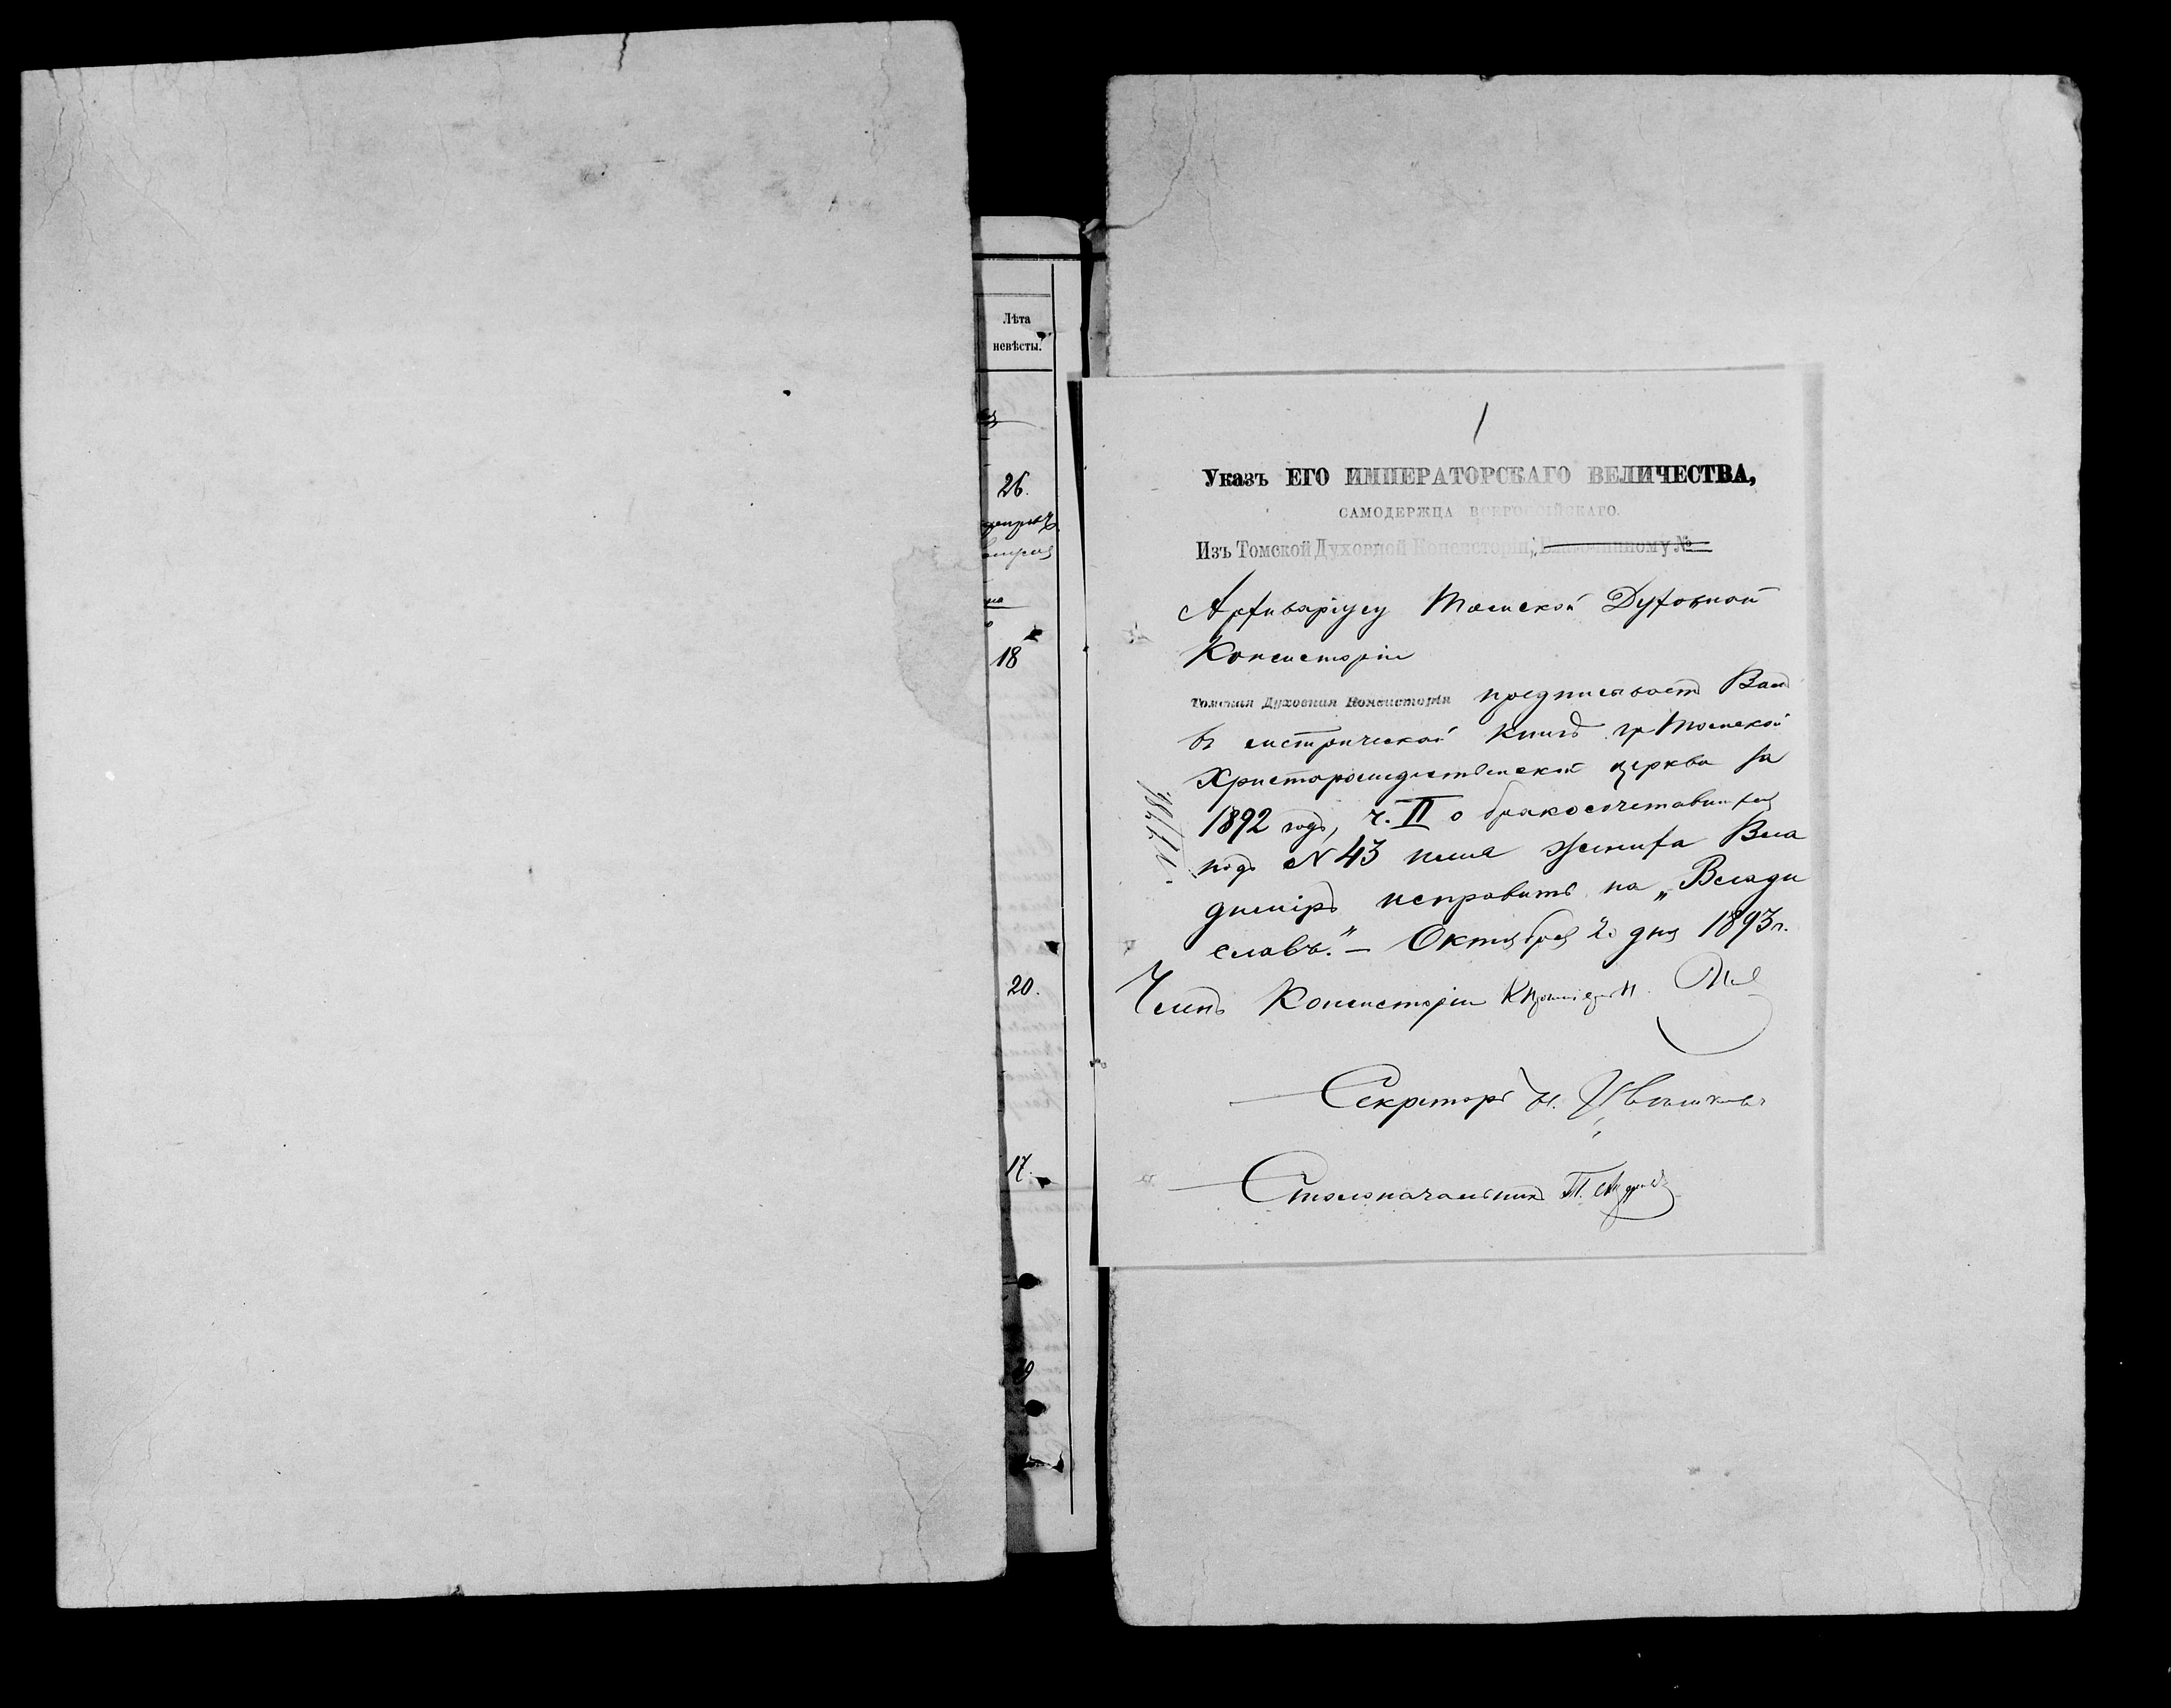 Лѣта
невѣсты.
26.
18
20.
17.
1
Указъ ЕГО ИМПЕРАТОРСКАГО ВЕЛИЧЕСТВА,
САМОДЕРЖЦА ВСЕРОССІЙСКАГО.
Изъ Томской Духовной Консисторіи, Благочинному №
Архиваріусу Томской Духовной
Консисторіи
Томская Духовная Консисторія предписываетъ Вамъ
въ метрической книгѣ гр Томской
Христорождественской церкви за
1892 годъ, ч. II о бракосочетавшихся
подъ № 43 имя жениха Вла
диміръ исправить на „Влади
славъ." – Октября 20 дня 1893 г.
Членъ Консисторіи
Секретарь И.
Столоначальникъ